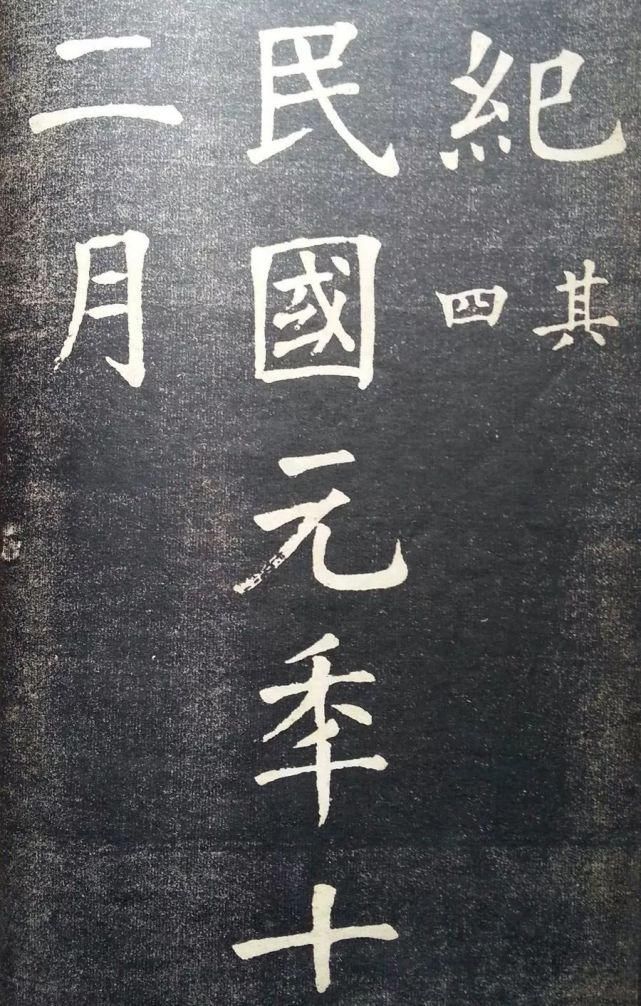 紀
其四
民國元秊十
二月